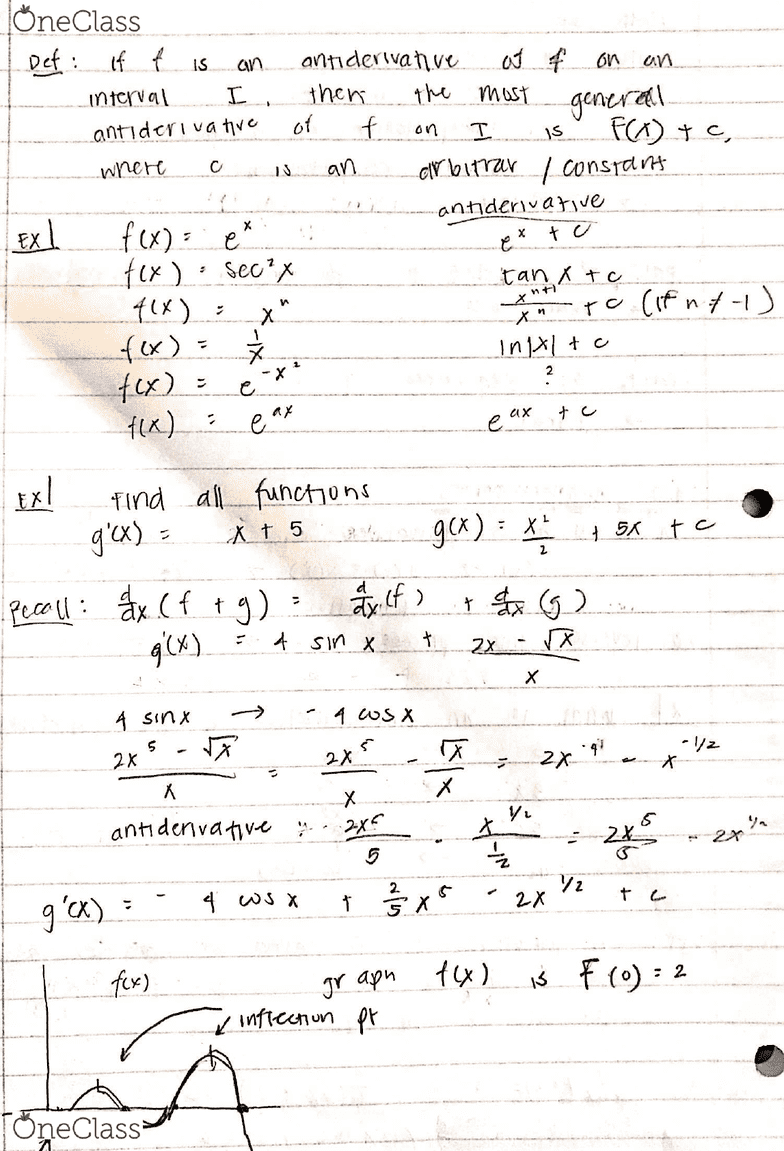 OneClass
Def : If f is an antiderivative of f on an
interval I, then the most general
antiderivative of f on I is F(x) + c,
where c is an arbitrar / constant
antiderivative
EX1 f(x) = e^x e^x + c
f(x) = sec²x tan x + c
f(x) = x^n x^(n+1)/x^n + c (if n ≠ -1)
f(x) = 1/x ln|x| + c
f(x) = e^(-x²) ?
f(x) = e^(ax) e^(ax) + c
EX1 Find all functions
g'(x) = x + 5 g(x) = x²/2 + 5x + c
Recall : d/dx (f + g) = d/dx (f) + d/dx (g)
g'(x) = 4 sin x + 2x - √x / x
4 sinx → - 4 cos x
2x^5 - √x / x = 2x^5 / x - √x / x = 2x^4 - x^(-1/2)
antiderivative : 2x^5 / 5 - x^(1/2) / (1/2) = 2x^5 / 5 - 2x^(1/2)
g'(x) = - 4 cos x + 2/5 x^5 - 2x^(1/2) + c
f(x) graph f(x) is F(0) = 2
inflection pt
OneClass